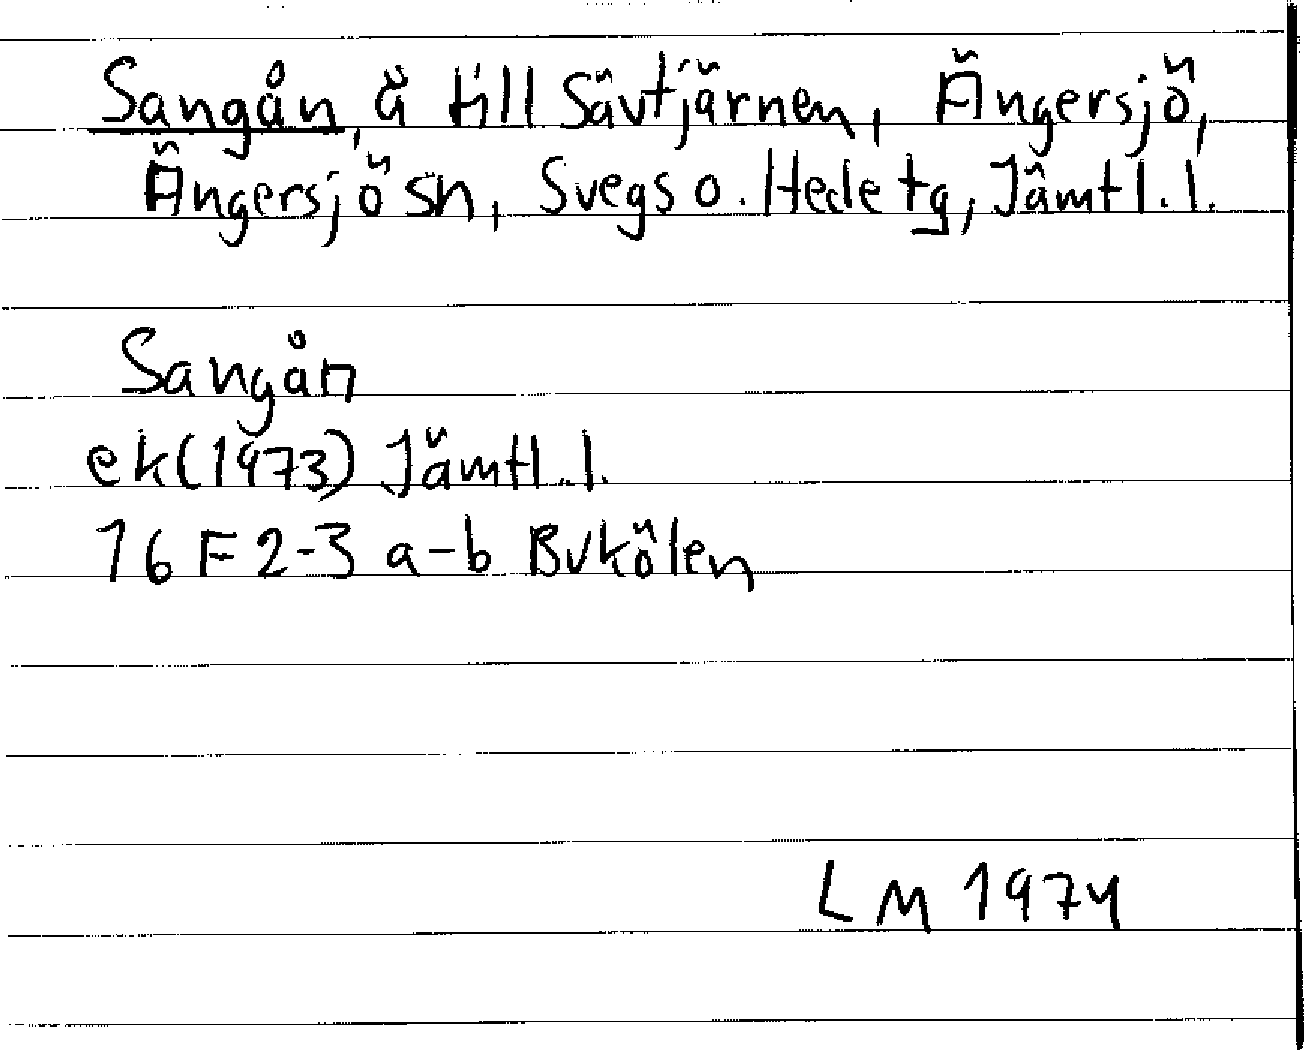 Sangån, å till Sävtjärnen, Ängersjö,
Ängersjö sn, Svegs o. Hede tg, Jämtl.l.
Sangån
ek(1973) Jämtl.l.
16 F 2-3 a-b Bvkölen
LM 1974